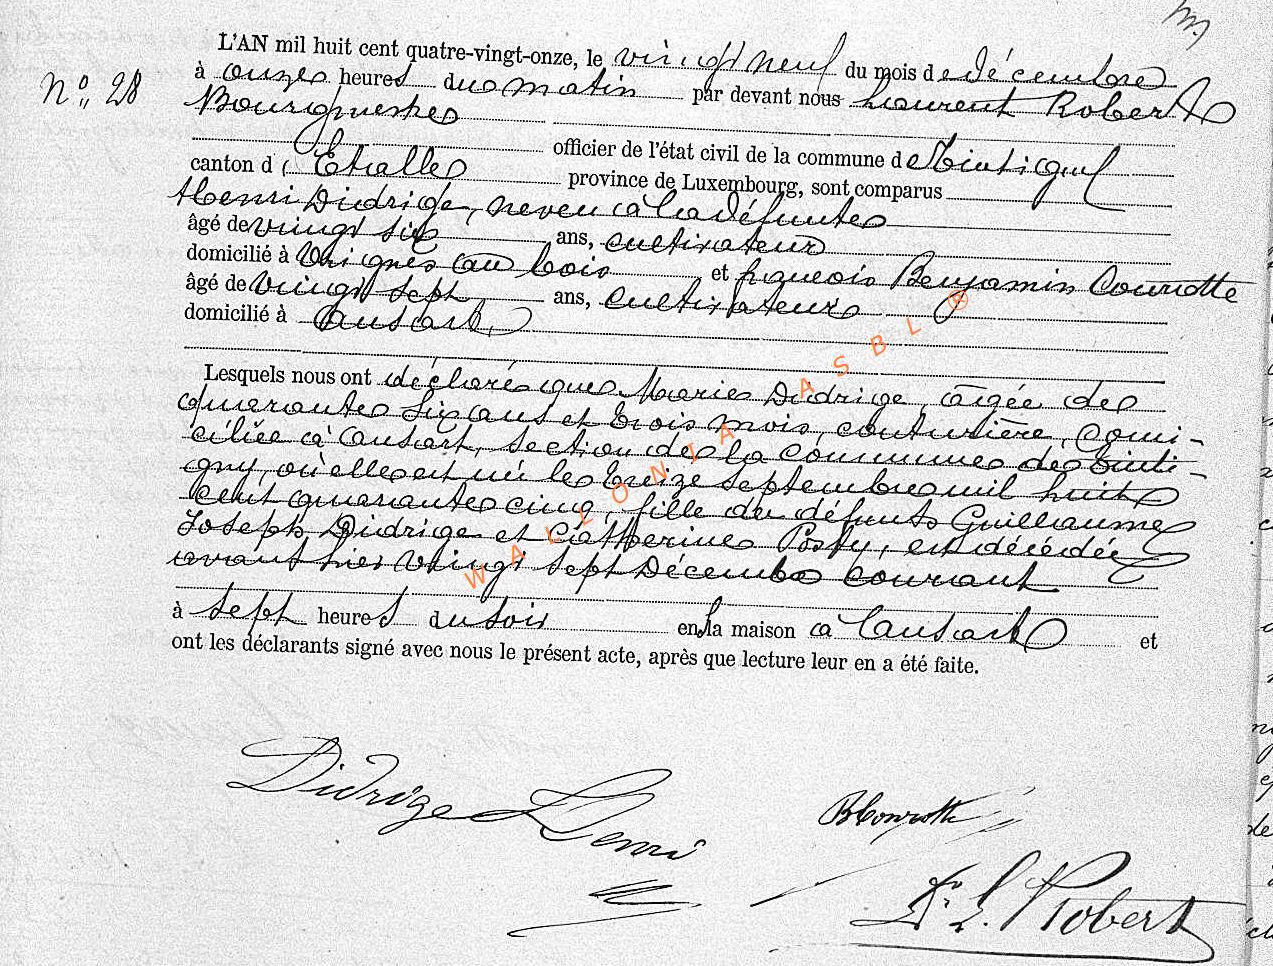 L'AN mil huit cent quatre-vingt-onze, le vingt neuf du mois de décembre
Nº 28
à onze heures du matin par devant nous Laurent Robert
Bourgmestre
officier de l'état civil de la commune de Tintigny
canton d'Etalle province de Luxembourg, sont comparus
Henri Didrige, neveu à la défunte
âgé de vingt six ans, cultivateur
domicilié à au bois et Benjamin Conrotte
âgé de vingt sept ans, cultivateur
domicilié à Ansart
Lesquels nous ont déclaré que Marie Didrige, agée de
quarante six ans et trois mois, couturière, domi-
ciliée à Ansart, section de la commune de Tinti-
gny, où elle est né le treize septembre mil huit
cent quarante cinq, fille de défunts Guillaume
Joseph Didrige et Catherine Posty, est décédée
avant hier vingt sept Décembre courant
à sept heures du soir en la maison à Ansart et
ont les déclarants signé avec nous le présent acte, après que lecture leur en a été faite.
Didrige Henri
B Conrotte
L. Robert
WALLONIA ASBL ®